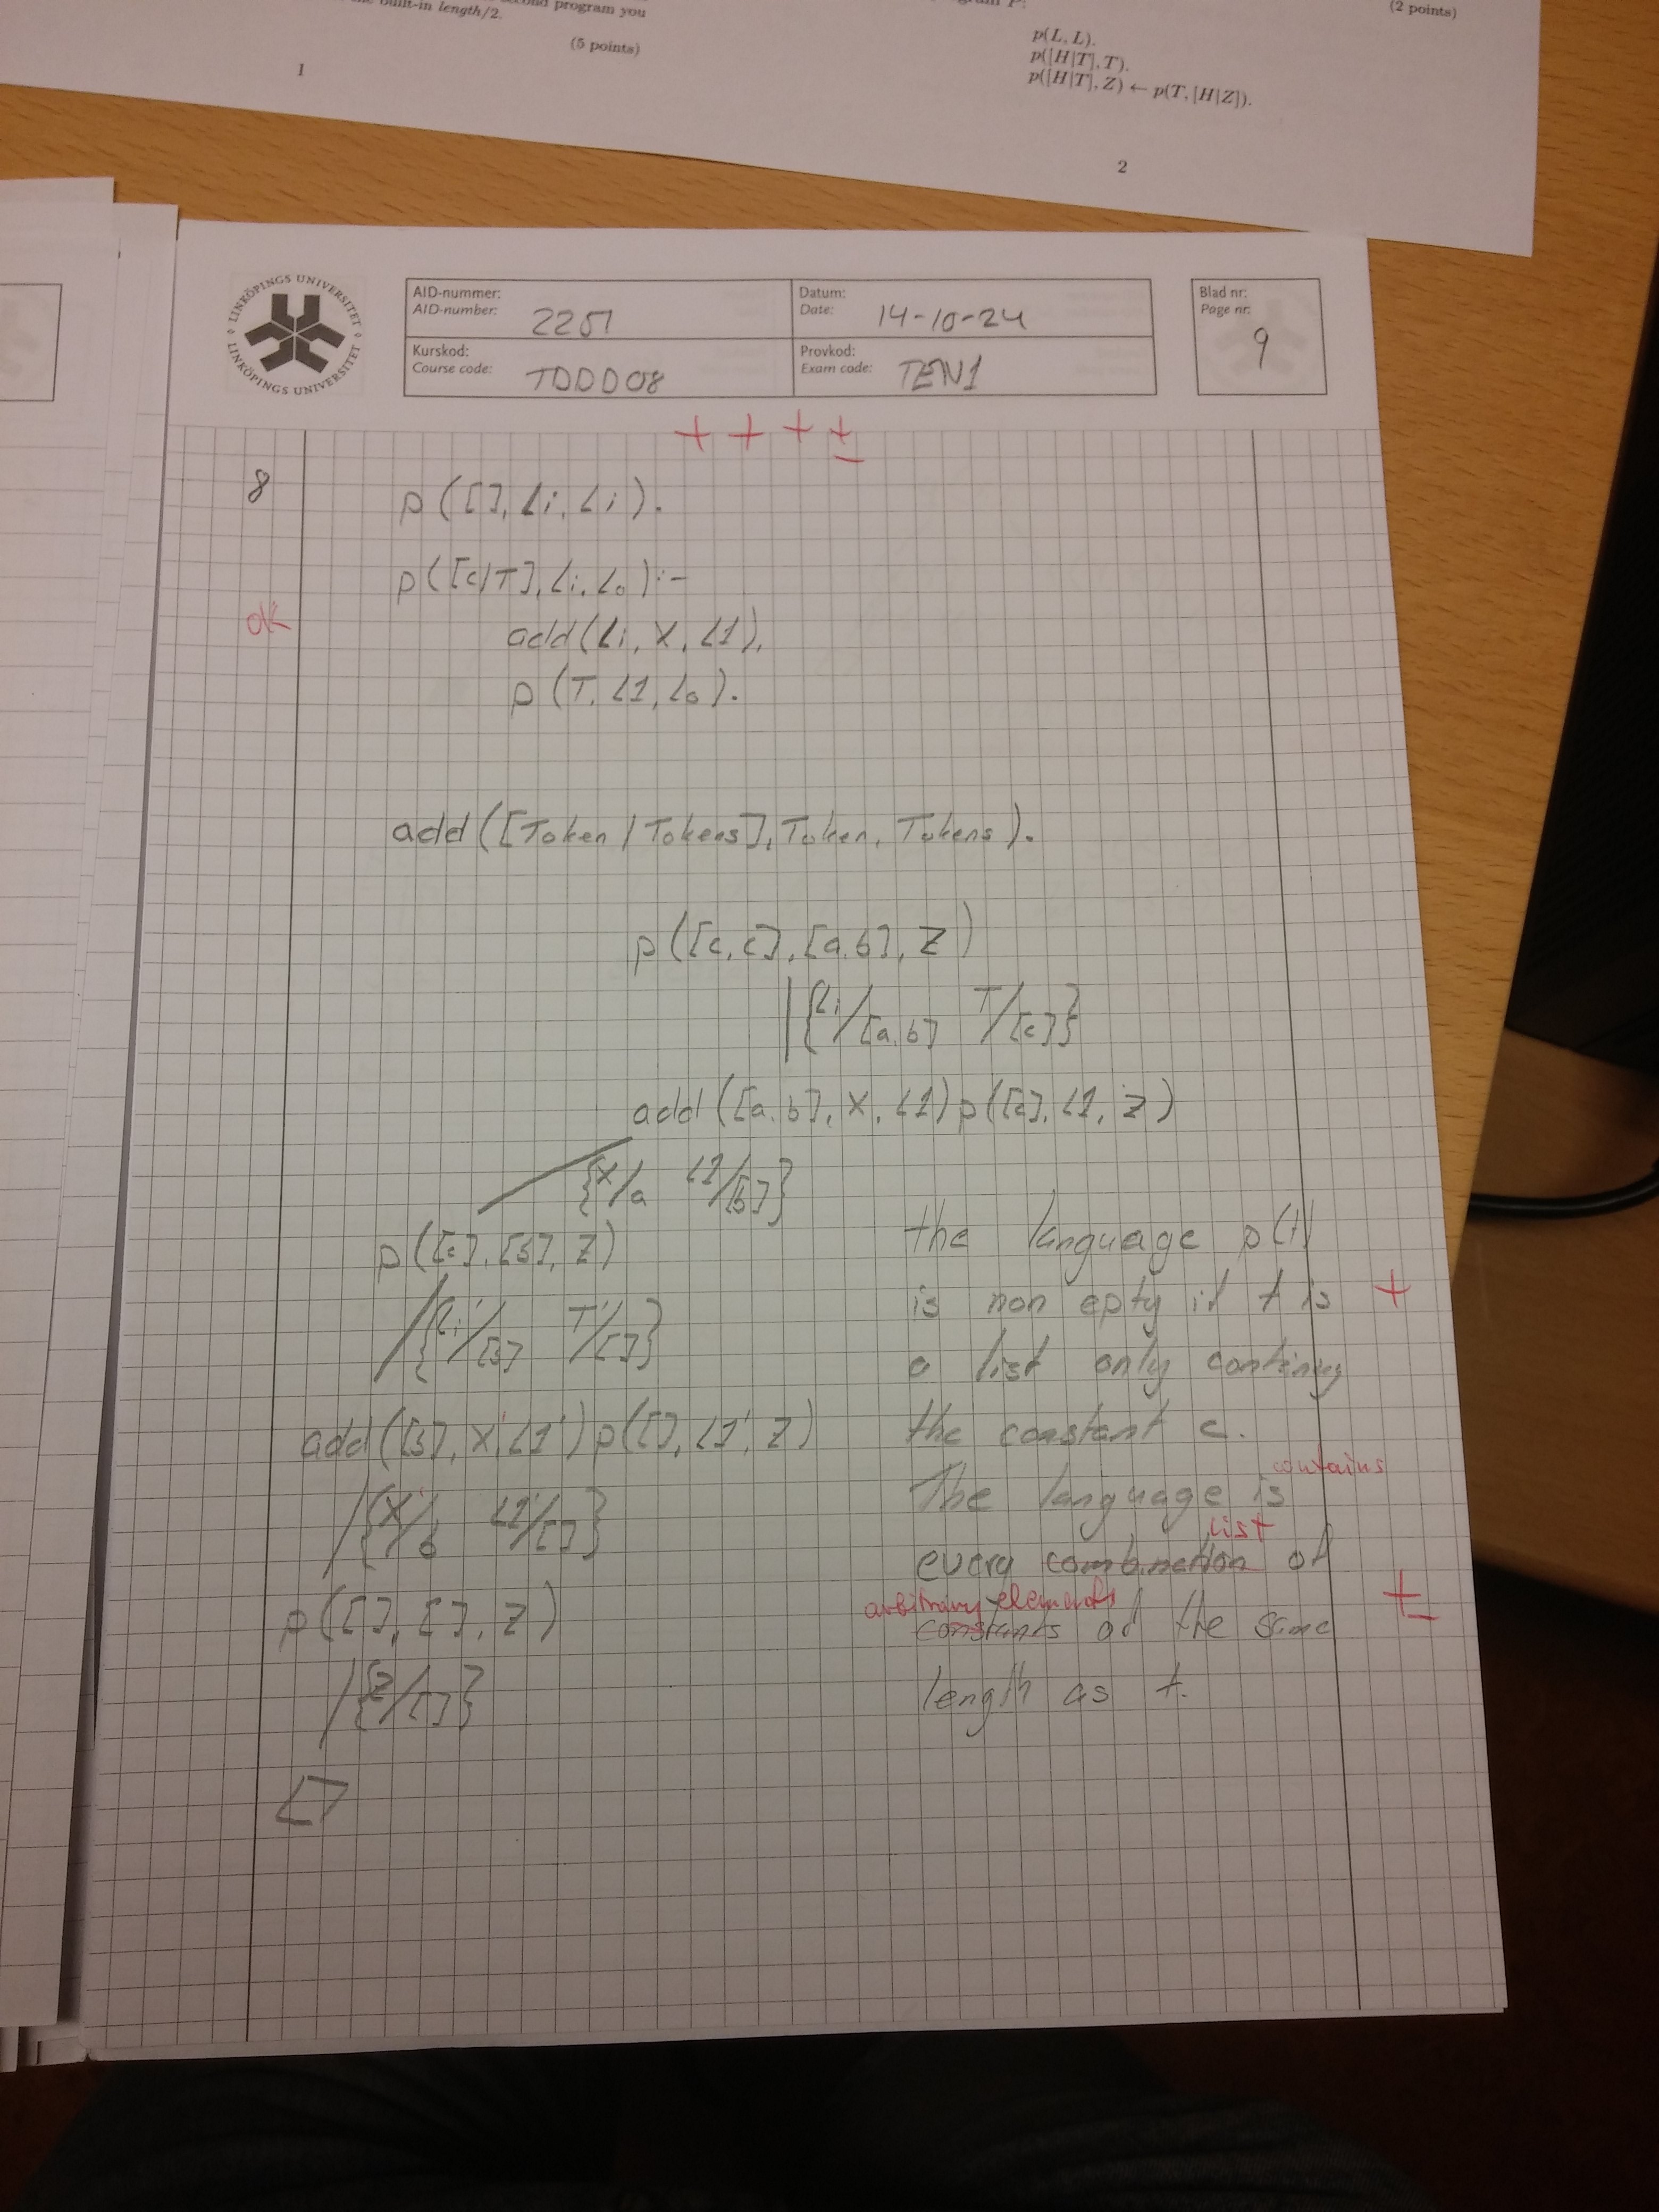 second program you
built-in length/2.
(5 points)
1
(2 points)
p(L, L).
p([H|T], T).
p([H|T], Z) ← p(T, [H|Z]).
2
LINKÖPINGS UNIVERSITET
LINKÖPINGS UNIVERSITET
AID-nummer:
AID-number: 2251
Datum:
Date: 14-10-24
Blad nr:
Page nr: 9
Kurskod:
Course code: TDDD08
Provkod:
Exam code: TEN1
+ + + ±
8
p([], Li, Li).
p([c|T], Li, Lo):-
ok
add(Li, X, L1),
p(T, L1, Lo).
add([Token | Tokens], Token, Tokens).
p([c,c], [a,b], Z)
{Li/[a,b] T/[c]}
add([a,b], X, L1) p([c], L1, Z)
{X/a L1/[b]}
p([c], [b], Z)
{Li'/[b] T'/[]}
add([b], X', L1') p([], L1', Z)
{X'/b L1'/[]}
p([], [], Z)
{Z/[]}
the language p(t)
is non epty if t is +
a list only contining
the constant c.
contains
The language is
list
every combination of
arbitrary elements
constants of the same ±
length as t.